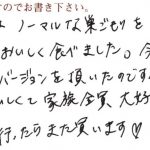 すのでお書き下さい。
は ノーマルな巣ごもりを
おいしく食べました。今
バージョンを頂いたのです
いしくて家族全員 大好
行ったらまた買います♡